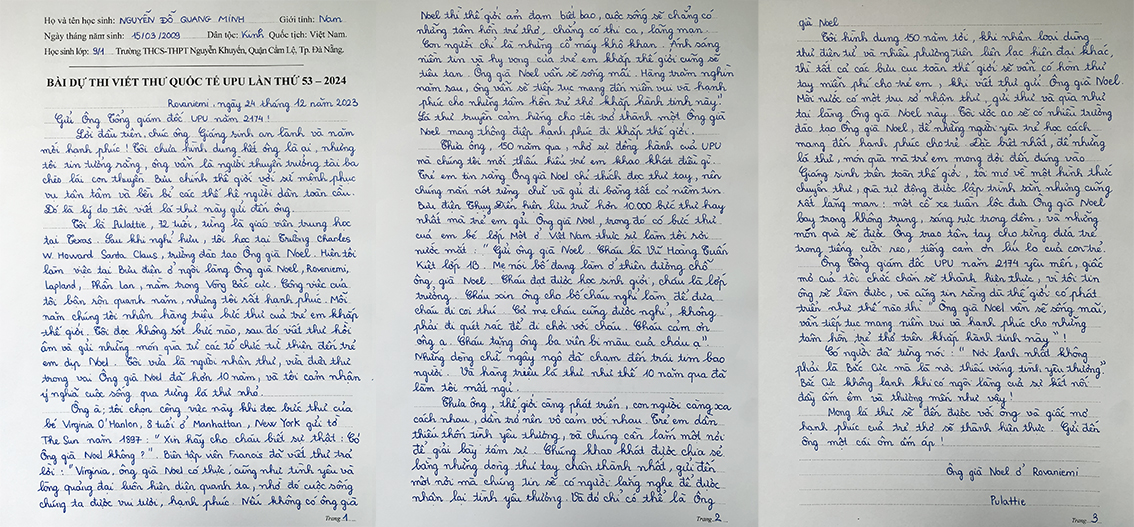 Họ và tên học sinh: NGUYỄN ĐỖ QUANG MINH Giới tính: Nam
Ngày tháng năm sinh: 15/03/2009 Dân tộc: Kinh Quốc tịch: Việt Nam.
Học sinh lớp: 9/1 Trường THCS-THPT Nguyễn Khuyến, Quận Cẩm Lệ, Tp. Đà Nẵng.
BÀI DỰ THI VIẾT THƯ QUỐC TẾ UPU LẦN THỨ 53 – 2024
Rovaniemi, ngày 24 tháng 12 năm 2023
Gửi Ông Tổng giám đốc UPU năm 2174!
Lời đầu tiên, chúc ông Giáng sinh an lành và năm
mới hạnh phúc! Tôi chưa hình dung hết ông là ai, nhưng
tôi tin tưởng rằng, ông vẫn là người thuyền trưởng tài ba
chèo lái con thuyền Bưu chính thế giới với sứ mệnh phục
vụ tận tâm và bền bỉ các thế hệ người dân toàn cầu.
Đó là lý do tôi viết lá thư này gửi đến ông.
Tôi là Pulattie, 72 tuổi, từng là giáo viên trung học
tại Texas. Sau khi nghỉ hưu, tôi học tại Trường Charles
W. Howard Santa Claus, trường đào tạo Ông già Noel. Hiện tôi
làm việc tại Bưu điện ở ngôi làng Ông già Noel, Rovaniemi,
Lapland, Phần Lan, nằm trong Vòng Bắc Cực. Công việc của
tôi bận rộn quanh năm, nhưng tôi rất hạnh phúc. Mỗi
năm chúng tôi nhận hàng triệu bức thư của trẻ em khắp
thế giới. Tôi đọc không sót bức nào, sau đó viết thư hồi
âm và gửi những món quà từ các tổ chức từ thiện đến trẻ
em dịp Noel. Tôi vừa là người nhận thư, vừa đưa thư
trong vai Ông già Noel đã hơn 10 năm, và tôi cảm nhận
ý nghĩa cuộc sống qua từng lá thư nhỏ.
Ông ạ, tôi chọn công việc này khi đọc bức thư của
bé Virginia O'Hanlon, 8 tuổi ở Manhattan, New York gửi tờ
The Sun năm 1897: "Xin hãy cho cháu biết sự thật: Có
Ông già Noel không?". Biên tập viên Francis đã viết thư trả
lời: "Virginia, ông già Noel có thực, cũng như tình yêu và
lòng quảng đại luôn hiện diện quanh ta, nhờ đó cuộc sống
chúng ta được vui tươi, hạnh phúc. Nếu không có ông già
Trang 1
Noel thì thế giới ảm đạm biết bao, cuộc sống sẽ chẳng có
những tâm hồn trẻ thơ, chẳng có thi ca, lãng mạn.
Con người chỉ là những cỗ máy khô khan. Ánh sáng
niềm tin và hy vọng của trẻ em khắp thế giới cũng sẽ
tiêu tan. Ông già Noel vẫn sẽ sống mãi. Hàng trăm nghìn
năm sau, ông vẫn sẽ tiếp tục mang đến niềm vui và hạnh
phúc cho những tâm hồn trẻ thơ khắp hành tinh này".
Lá thư truyền cảm hứng cho tôi trở thành một Ông già
Noel mang thông điệp hạnh phúc đi khắp thế giới.
Thưa ông, 150 năm qua, nhờ sự đồng hành của UPU
mà chúng tôi mới thấu hiểu trẻ em khao khát điều gì.
Trẻ em tin rằng Ông già Noel chỉ thích đọc thư tay, nên
chúng nắn nót từng chữ và gửi đi bằng tất cả niềm tin.
Bưu điện Thụy Điển hiện lưu trữ hơn 10.000 bức thư hay
nhất mà trẻ em gửi Ông già Noel, trong đó có bức thư
của em bé lớp Một ở Việt Nam thực sự làm tôi rơi
nước mắt: "Gửi ông già Noel. Cháu là Vũ Hoàng Tuấn
Kiệt lớp 1B. Mẹ nói bố đang làm ở thiên đường chỗ
ông già Noel. Cháu đạt được học sinh giỏi, cháu là lớp
trưởng. Cháu xin ông cho bố cháu nghỉ làm, để đưa
cháu đi coi thú. Cả mẹ cháu cũng được nghỉ, không
phải đi quét rác để đi chơi với cháu. Cháu cảm ơn
ông ạ. Cháu tặng ông ba viên bi màu của cháu ạ".
Những dòng chữ ngây ngô đã chạm đến trái tim bao
người. Và hàng triệu lá thư như thế 10 năm qua đã
làm tôi mất ngủ.
Thưa ông, thế giới càng phát triển, con người càng xa
cách nhau, dần trở nên vô cảm với nhau. Trẻ em dần
thiếu thốn tình yêu thương, và chúng cần lắm một nơi
để giãi bày tâm sự. Chúng khao khát được chia sẻ
bằng những dòng thư tay chân thành nhất, gửi đến
một nơi mà chúng tin sẽ có người lắng nghe để được
nhận lại tình yêu thương. Và đó chỉ có thể là Ông
Trang 2
già Noel
Tôi hình dung 150 năm tới, khi nhân loại dùng
thư điện tử và nhiều phương tiện liên lạc hiện đại khác,
thì tất cả các bưu cục toàn thế giới sẽ vẫn có hòm thư
tay miễn phí cho trẻ em, khi viết thư gửi Ông già Noel.
Mỗi nước có một trụ sở nhận thư, gửi thư và quà như
tại làng Ông già Noel này. Tôi ước ao sẽ có nhiều trường
đào tạo Ông già Noel, để những người yêu trẻ học cách
mang đến hạnh phúc cho trẻ. Đặc biệt nhất, để những
lá thư, món quà mà trẻ em mong đợi đến đúng vào
Giáng sinh trên toàn thế giới, tôi mơ về một hình thức
chuyển thư, quà tự động được lập trình sẵn nhưng cũng
rất lãng mạn: một cỗ xe tuần lộc đưa Ông già Noel
bay trong không trung, sáng rực trong đêm, và những
món quà sẽ được Ông trao tận tay cho từng đứa trẻ
trong tiếng cười reo, tiếng cảm ơn líu lo của con trẻ.
Ông Tổng giám đốc UPU năm 2174 yêu mến, giấc
mơ của tôi chắc chắn sẽ thành hiện thực, vì tôi tin
ông sẽ làm được, và cũng tin rằng dù thế giới có phát
triển như thế nào thì "Ông già Noel vẫn sẽ sống mãi,
vẫn tiếp tục mang niềm vui và hạnh phúc cho những
tâm hồn trẻ thơ trên khắp hành tinh này"!
Có người đã từng nói: "Nơi lạnh nhất không
phải là Bắc Cực mà là nơi thiếu vắng tình yêu thương".
Bắc Cực không lạnh khi có ngôi làng của sự kết nối
đầy ấm êm và thương mến như vậy!
Mong lá thư sẽ đến được với ông và giấc mơ
hạnh phúc của trẻ thơ sẽ thành hiện thực. Gửi đến
ông một cái ôm ấm áp!
Ông già Noel ở Rovaniemi
Pulattie
Trang 3